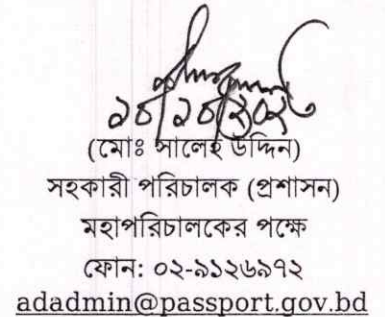 (মোঃ সালেহ উদ্দিন)
সহকারী পরিচালক (প্রশাসন)
মহাপরিচালকের পক্ষে
ফোন: ০২-৯১২৬৯৭২
adadmin@passport.gov.bd